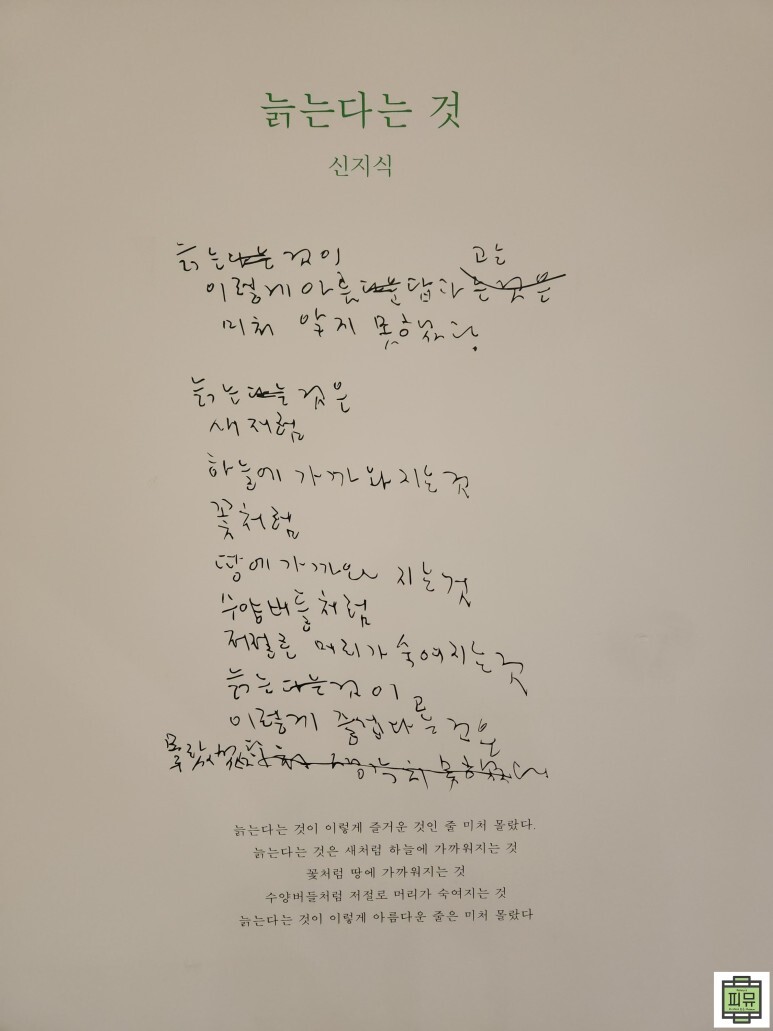 늙는다는 것
신지식
늙는다는 것이
고는
이렇게 아름다운답다는 것은
미처 알지 못했다.
늙는다는 것은
새처럼
하늘에 가까와 지는 것
꽃처럼
땅에 가까와 지는 것
수양버들처럼
저절로 머리가 숙여지는 것
늙는다는 것이
이렇게 즐겁다고는
몰랐었다
늙는다는 것이 이렇게 즐거운 것인 줄 미처 몰랐다.
늙는다는 것은 새처럼 하늘에 가까워지는 것
꽃처럼 땅에 가까워지는 것
수양버들처럼 저절로 머리가 숙여지는 것
늙는다는 것이 이렇게 아름다운 줄은 미처 몰랐다
피뮤